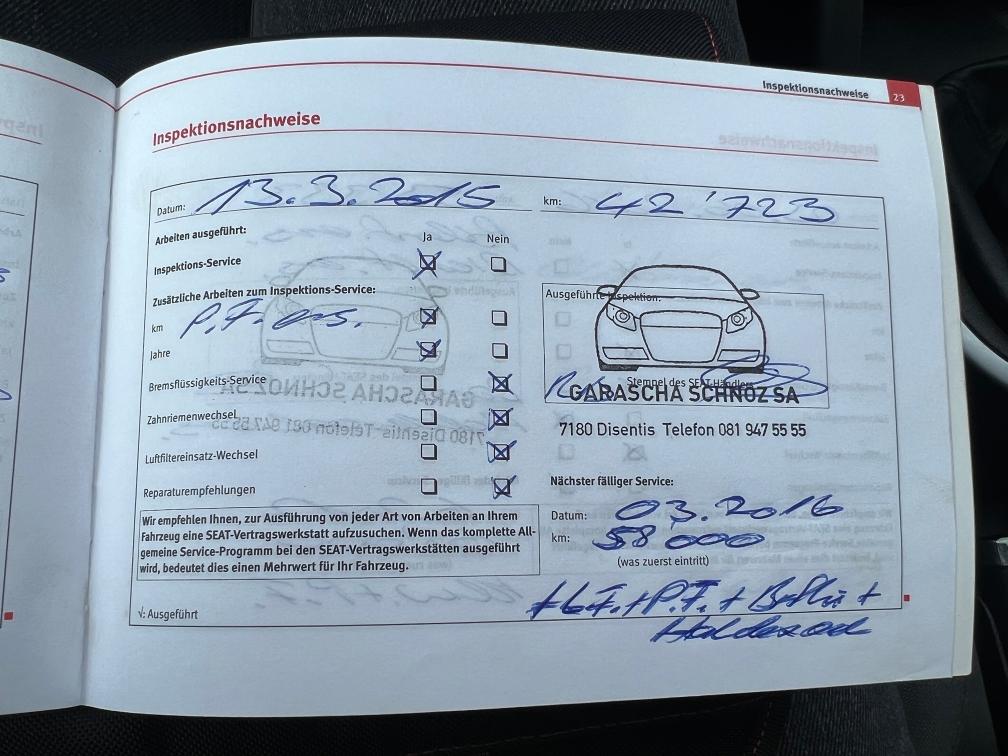 Inspektionsnachweise 23
Inspektionsnachweise
Datum: 13.3.2015 km: 42'723
Arbeiten ausgeführt: Ja Nein
Inspektions-Service
Zusätzliche Arbeiten zum Inspektions-Service:
km P.F. ers.
Jahre
Bremsflüssigkeits-Service
Zahnriemenwechsel
Luftfiltereinsatz-Wechsel
Reparaturempfehlungen
Wir empfehlen Ihnen, zur Ausführung von jeder Art von Arbeiten an Ihrem
Fahrzeug eine SEAT-Vertragswerkstatt aufzusuchen. Wenn das komplette All-
gemeine Service-Programm bei den SEAT-Vertragswerkstätten ausgeführt
wird, bedeutet dies einen Mehrwert für Ihr Fahrzeug.
√: Ausgeführt
Ausgeführte Inspektion:
Stempel des SEAT-Händlers
GARASCHA SCHNOZ SA
7180 Disentis Telefon 081 947 55 55
Nächster fälliger Service:
Datum: 03.2016
km: 58'000
(was zuerst eintritt)
+ L.F. + P.F. + Bflü +